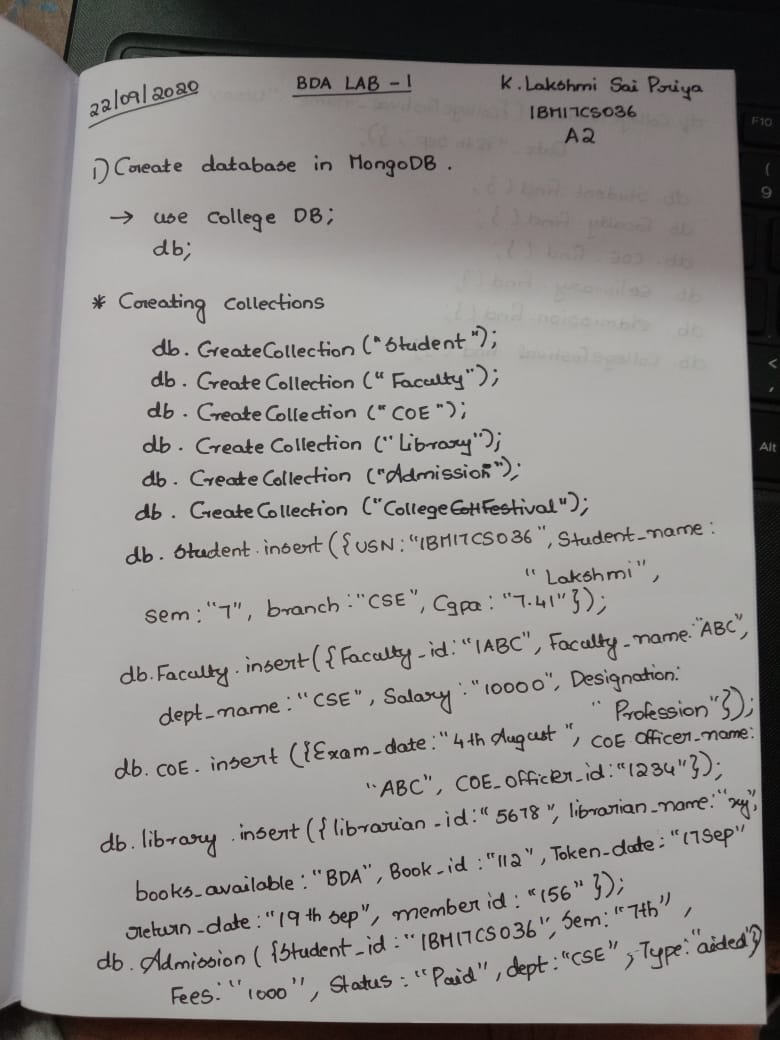 22/09/2020
BDA LAB - 1
K. Lakshmi Sai Priya
1BM17CS036
A2
1) Create database in MongoDB.
→ use College DB;
db;
* Creating Collections
db. Create Collection ("Student");
db. Create Collection ("Faculty");
db. Create Collection ("COE");
db. Create Collection ("Library");
db. Create Collection ("Admission");
db. Create Collection ("College Festival");
db. Student. insert ({USN: "1BM17CS036", Student_name:
"Lakshmi",
sem: "7", branch: "CSE", Cgpa: "7.41"});
db. Faculty. insert ({Faculty_id: "1ABC", Faculty_name: "ABC",
dept_name: "CSE", Salary: "10000", Designation:
"Profession"});
db. COE. insert ({Exam_date: "4th August", COE Officer_name:
"ABC", COE_Officer_id: "1234"});
db. library. insert ({librarian_id: "5678", librarian_name: "xy",
books_available: "BDA", Book_id: "112", Token_date: "17Sep"
return_date: "19th sep", member id: "156"});
db. Admission ({Student_id: "1BM17CS036", Sem: "7th",
Fees: "1000", Status: "Paid", dept: "CSE", Type: "aided"})
F10
(
9
<
,
Alt